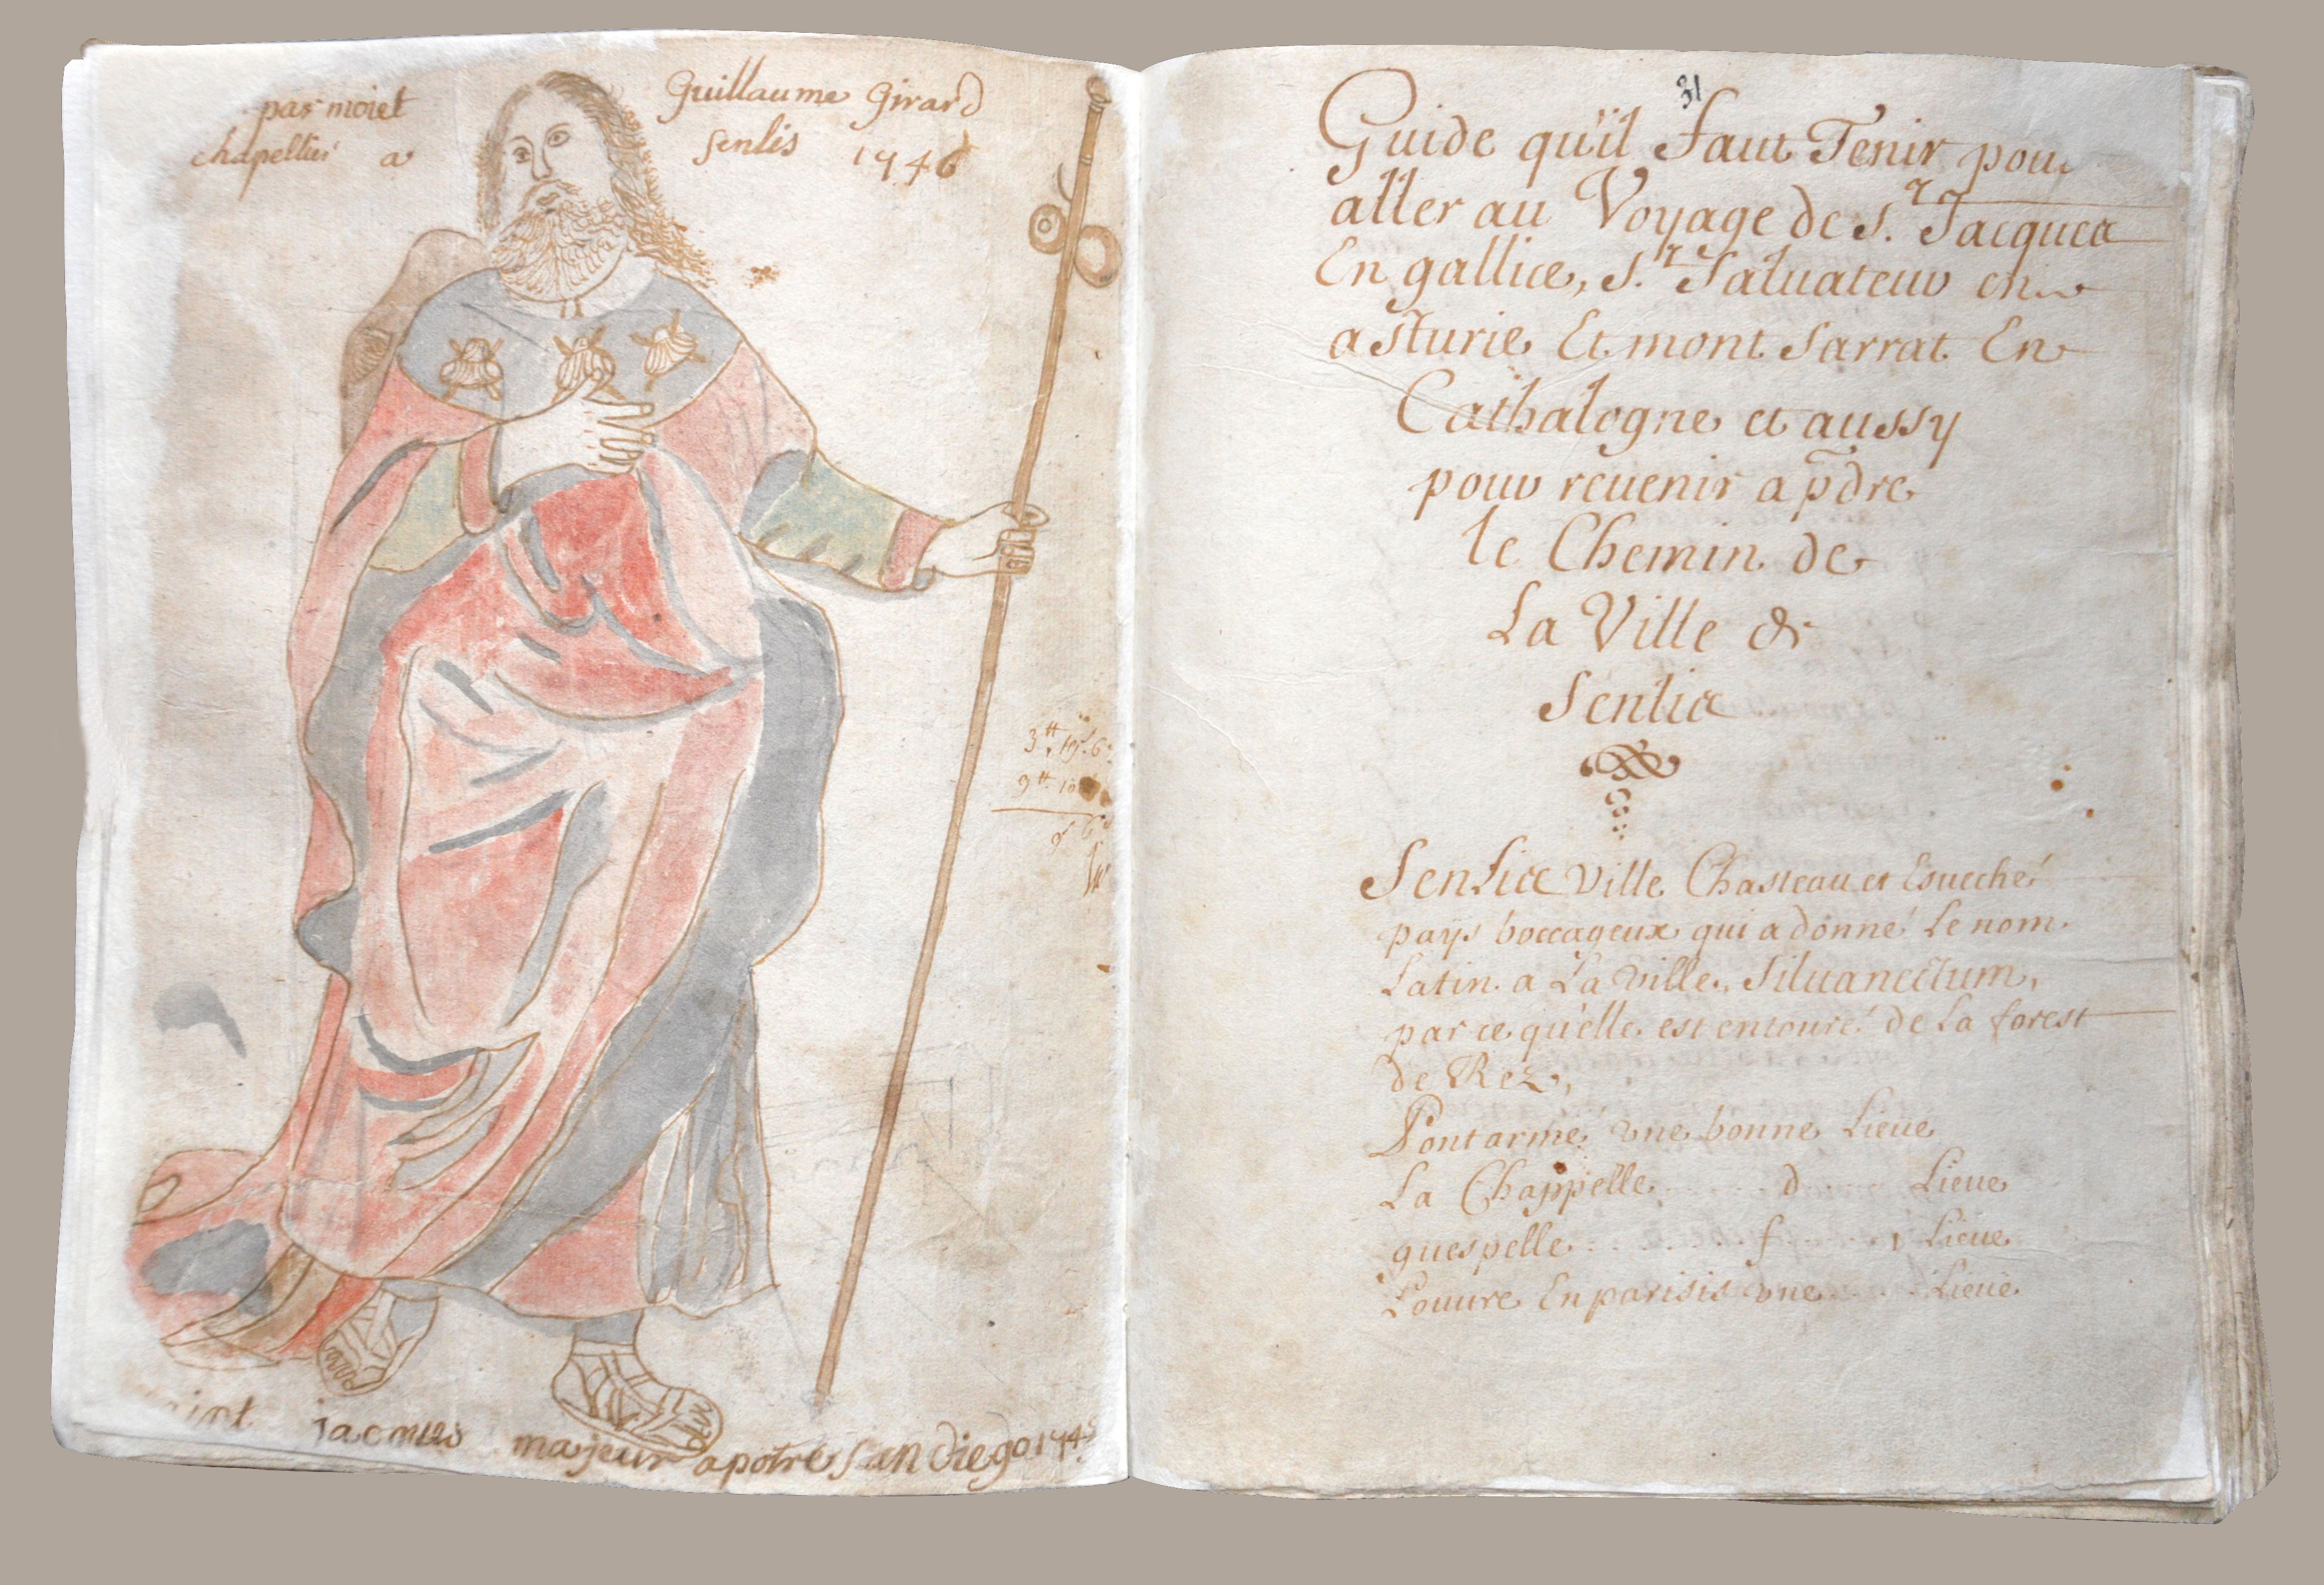 par moiet Guillaume Girard
chapellier a Senlis 1746
3# 19s 6d
9# 10
saint jacques majeur apotre San diego 1745
31
Guide qu'il Faut Tenir pour
aller au Voyage de St. Jacques
En gallice, St. Saluateur en
asturie Et mont Sarrat En
Cathalogne et aussy
pour reuenir a pdre
le Chemin de
La Ville de
Senlis
Senlis Ville Chasteau et Eueché
pays boccageux qui a donné Le nom
Latin a La Ville, Siluanectum,
par ce qu'elle est entouré de La forest
de Rez,
Pontarmé une bonne Lieue
La Chappelle ...... d ...... Lieue
guespelle ...... f ...... 1 Lieue
Louure En parisis une ...... Lieue